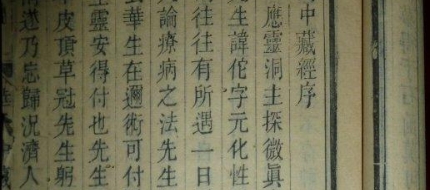 中藏經序
應靈洞主探微眞
先生諱佗字元化性
往往有所遇一日
論療病之法先生
華生在邇術可付
生靈安得付也先生
皮頂草冠先生躬
遂乃忘歸況濟人